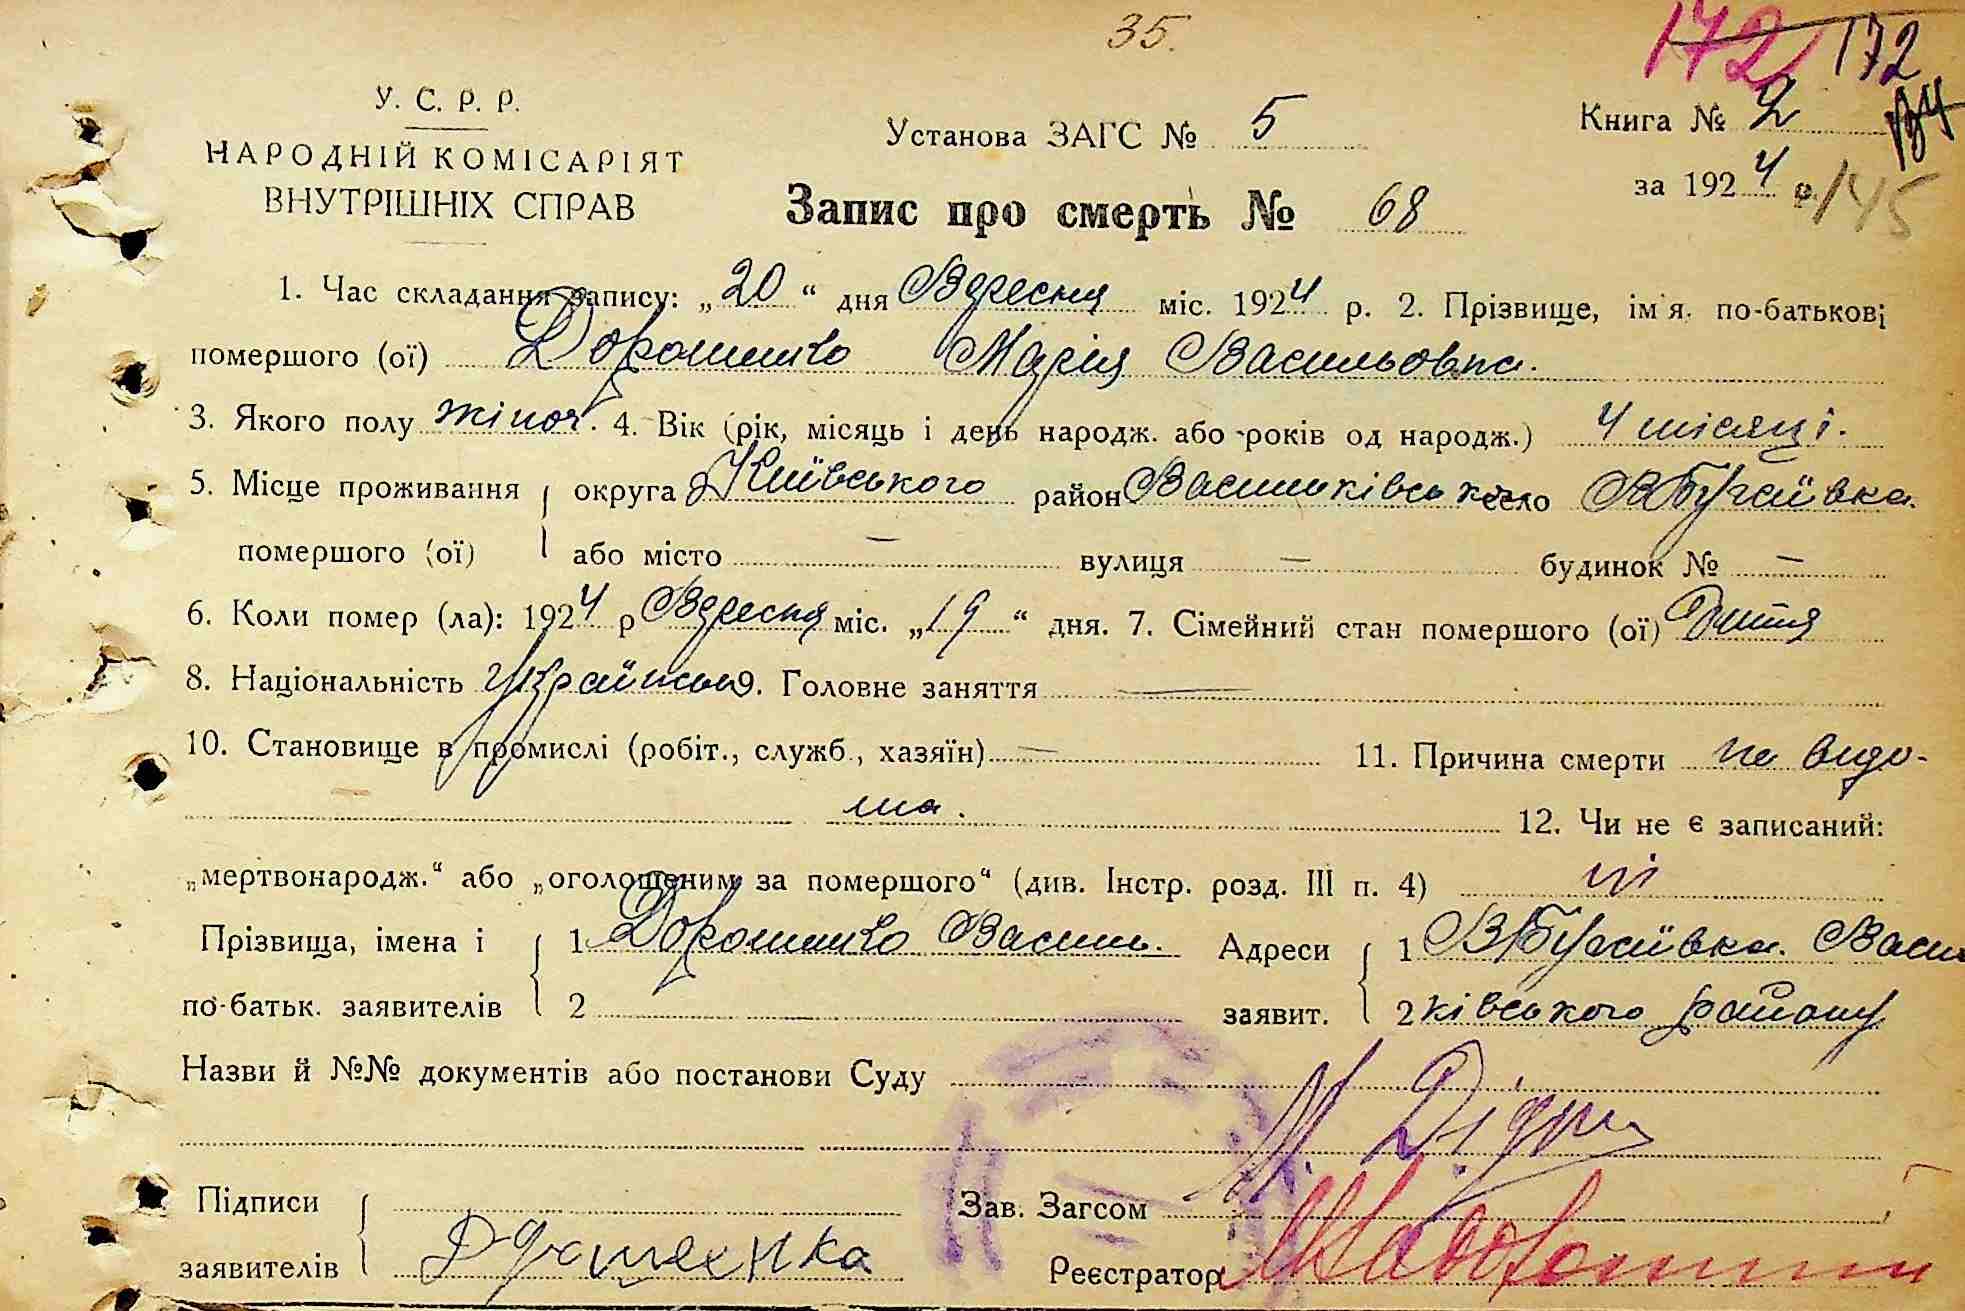 35.
172 172
У. С. Р. Р.
НАРОДНІЙ КОМІСАРІЯТ
ВНУТРІШНІХ СПРАВ
Установа ЗАГС № 5
Книга № 2
за 1924 р. 145
Запис про смерть № 68
1. Час складання запису: „20“ дня Вересня міс. 1924 р. 2. Прізвище, ім'я. по-батькові
помершого (ої) Дорошенко Марія Васильовна.
3. Якого полу жіноч. 4. Вік (рік, місяць і день народж. або років од народж.) 4 місяці.
5. Місце проживання округа Київського район Васильківськ село В Бугаївка.
помершого (ої) або місто — вулиця — будинок № —
6. Коли помер (ла): 1924 р Вересня міс. „19“ дня. 7. Сімейний стан помершого (ої) Дитя
8. Національність Українська 9. Головне заняття —
10. Становище в промислі (робіт., служб., хазяїн) — 11. Причина смерти не відо-
ма. 12. Чи не є записаний:
„мертвонародж.“ або „оголошеним за помершого“ (див. Інстр. розд. III п. 4) ні
Прізвища, імена і 1 Дорошенко Василь. Адреси 1 В Бугаївка. Васи
по-батьк. заявителів 2 заявит. 2 ківського району
Назви й №№ документів або постанови Суду
Підписи Зав. Загсом
заявителів Реєстратор